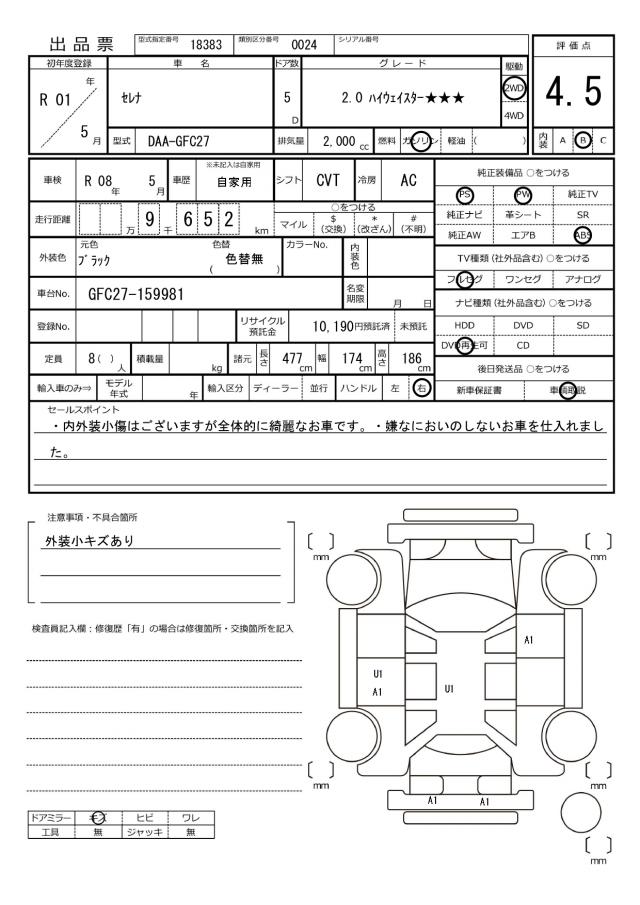 出品票 型式指定番号 18383 類別区分番号 0024 シリアル番号
評価点
4.5
内装 A B C
初年度登録 車名 ドア数 グレード 駆動
R 01 年 5 月 セレナ 5 D 2.0 ハイウェイスター★★★ 2WD
4WD
型式 DAA-GFC27 排気量 2,000 cc 燃料 ガソリン 軽油 ( )
車検 R 08 年 5 月 車歴 ※未記入は自家用 自家用 シフト CVT 冷房 AC
走行距離 万 9 千 6 5 2 km ○をつける
マイル $ (交換) * (改ざん) # (不明)
外装色 元色 ブラック 色替 ( 色替無 ) カラーNo. 内装色
車台No. GFC27-159981 名変期限 月 日
登録No. リサイクル預託金 10,190円預託済 未預託
定員 8 ( ) 人 積載量 kg 諸元 長さ 477 cm 幅 174 cm 高さ 186 cm
輸入車のみ⇒ モデル年式 年 輸入区分 ディーラー 並行 ハンドル 左 右
純正装備品 ○をつける
PS PW 純正TV
純正ナビ 革シート SR
純正AW エアB ABS
TV種類 (社外品含む) ○をつける
フルセグ ワンセグ アナログ
ナビ種類 (社外品含む) ○をつける
HDD DVD SD
DVD再生可 CD
後日発送品 ○をつける
新車保証書 車輌取説
セールスポイント
・内外装小傷はございますが全体的に綺麗なお車です。・嫌なにおいのしないお車を仕入れまし
た。
注意事項・不具合箇所
外装小キズあり
検査員記入欄：修復歴「有」の場合は修復箇所・交換箇所を記入
ドアミラー キズ ヒビ ワレ
工具 無 ジャッキ 無
[ ] mm
[ ] mm
A1
U1
A1
U1
[ ] mm
[ ] mm
A1 A1
[ ] mm